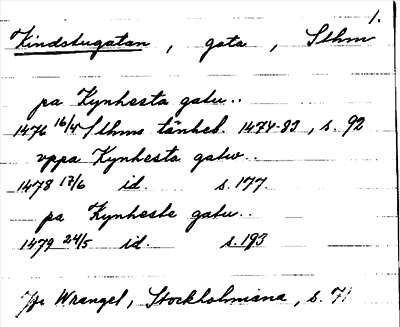 1.
Kindstugatan, gata, Sthm
pa Kynhesta gatu..
1476 16/4 Sthms tänkeb. 1474-83, s. 92
vppa Kynhesta gatw..
1478 17/6 id. s. 177
pa Kynheste gatu..
1479 24/5 id. s. 193
Jfr Wrangel, Stockholmiana, s. 71